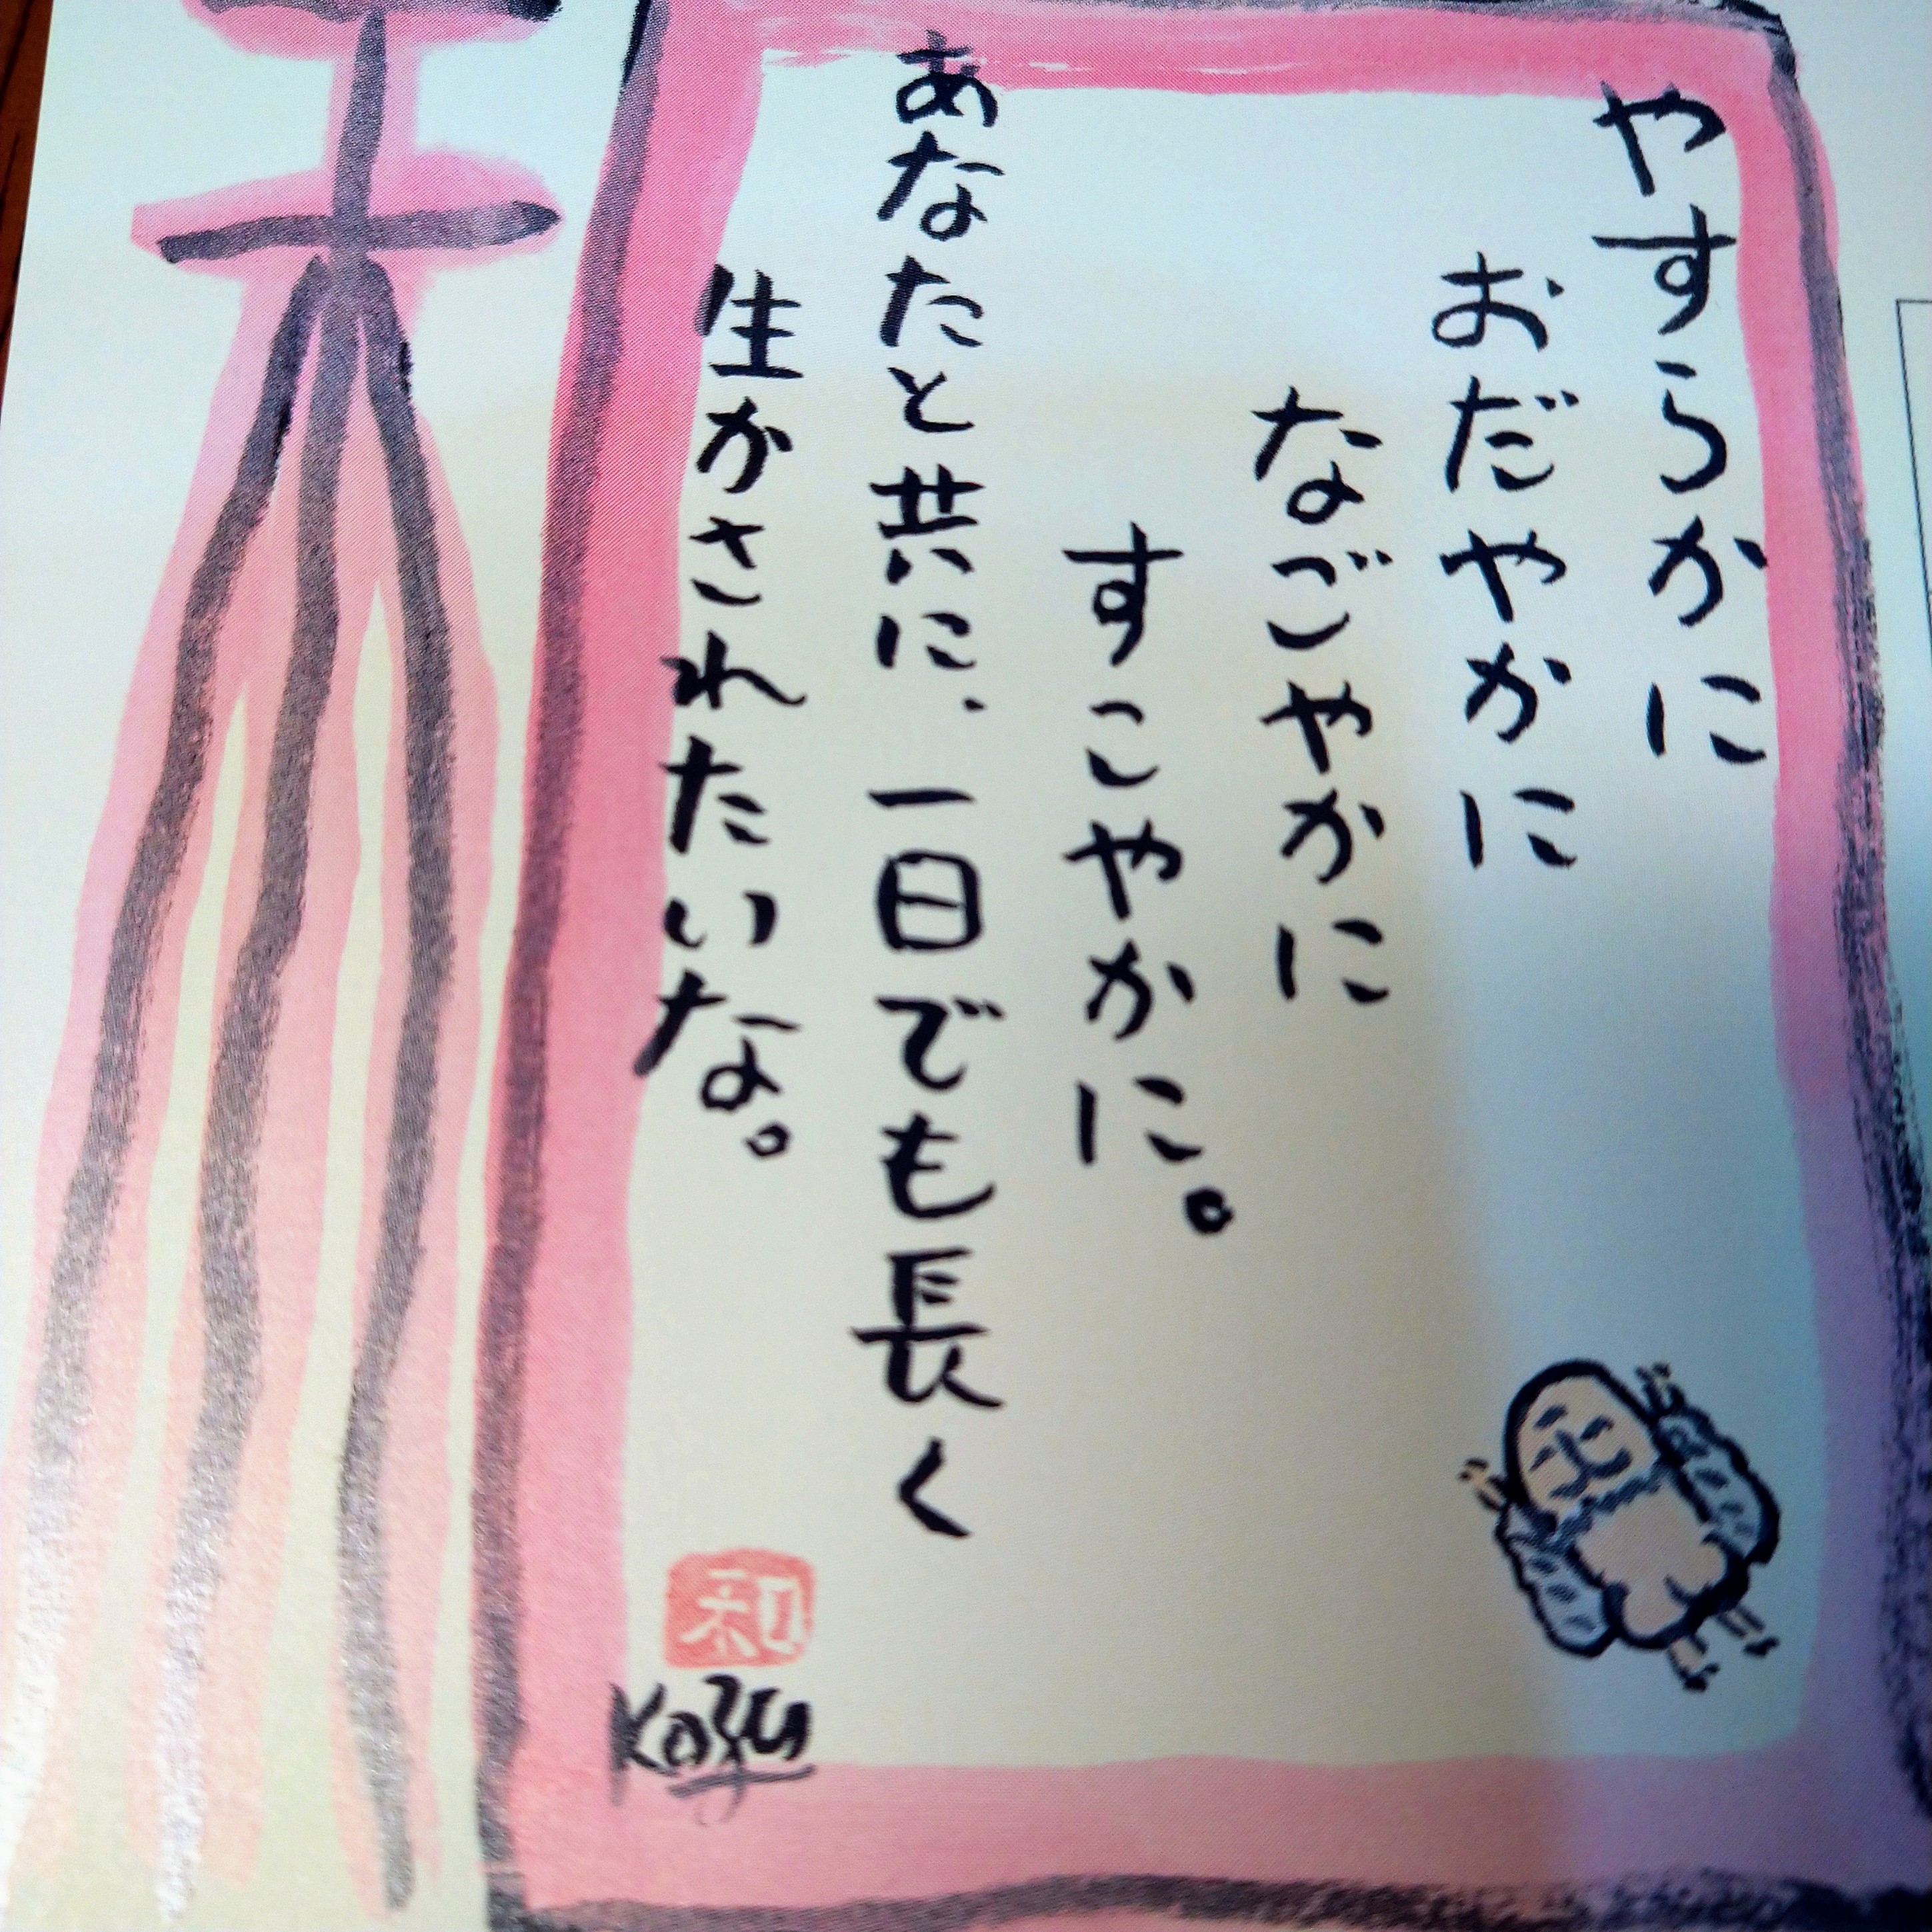 やすらかに
おだやかに
なごやかに
すこやかに。
あなたと共に、一日でも長く
生かされたいな。
和
Kazu